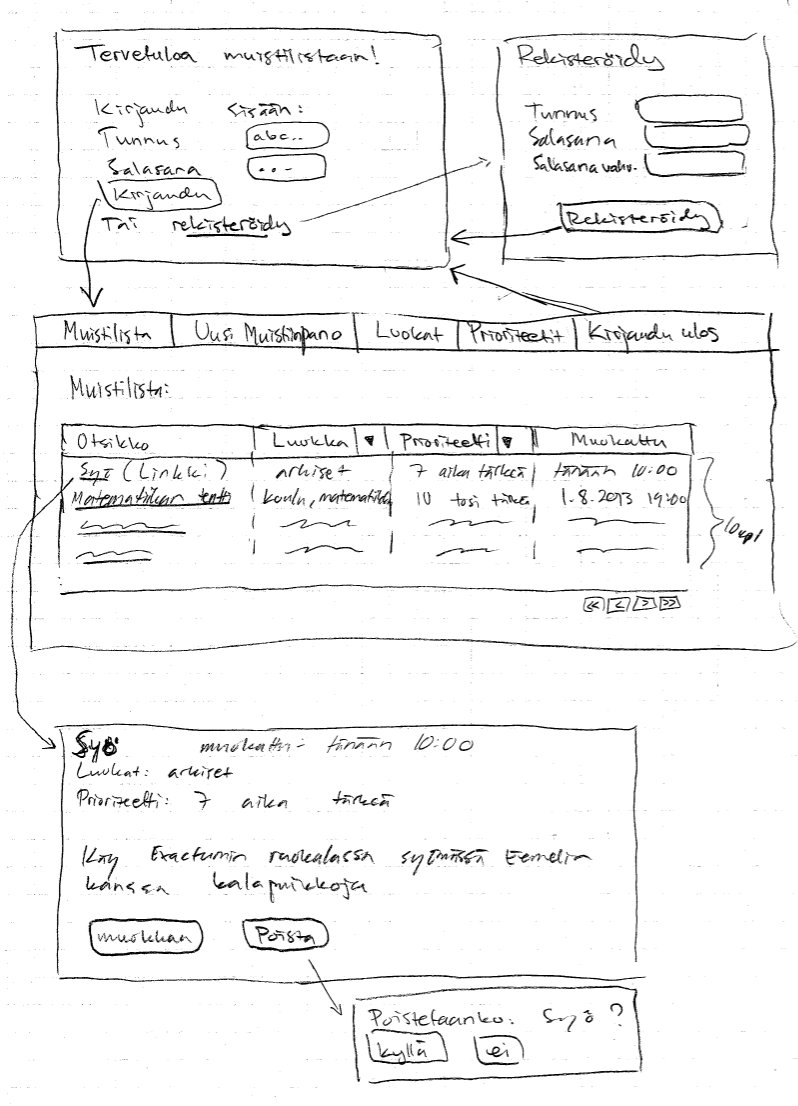 Tervetuloa muistilistaan!
Kirjaudu sisään:
Tunnus abc..
Salasana ...
Kirjaudu
Tai rekisteröidy
Rekisteröidy
Tunnus
Salasana
Salasana vahv.
Rekisteröidy
Muistilista Uusi Muistiinpano Luokat Prioriteetit Kirjaudu ulos
Muistilista:
Otsikko Luokka ▼ Prioriteetti ▼ Muokattu
Syö (Linkki) arkiset 7 aika tärkeä tänään 10:00
Matematiikan tentti koulu, matematiikka 10 tosi tärkeä 1.8.2013 19:00
10 kpl
<< < > >>
Syö muokattu - tänään 10:00
Luokat: arkiset
Prioriteetti: 7 aika tärkeä
Käy Exactumin ruokalassa syömässä Eemelin
kanssa kalapuikkoja
muokkaa Poista
Poistetaanko: Syö?
kyllä ei